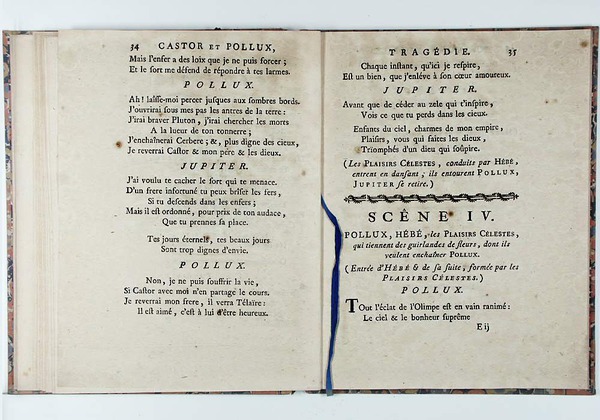 34 CASTOR ET POLLUX,
Mais l'enfer a des loix que je ne puis forcer ;
Et le sort me défend de répondre à tes larmes.
POLLUX.
Ah ! laisse-moi percer jusques aux sombres bords.
J'ouvrirai sous mes pas les antres de la terre :
J'irai braver Pluton, j'irai chercher les morts
A la lueur de ton tonnerre ;
J'enchaînerai Cerbere ; &, plus digne des cieux,
Je reverrai Castor & mon pere & les dieux.
JUPITER.
J'ai voulu te cacher le sort qui te menace.
D'un frere infortuné tu peux briser les fers,
Si tu descends dans les enfers ;
Mais il est ordonné, pour prix de ton audace,
Que tu prennes sa place.
Tes jours éternels, tes beaux jours
Sont trop dignes d'envie.
POLLUX.
Non, je ne puis souffrir la vie,
Si Castor avec moi n'en partage le cours.
Je reverrai mon frere, il verra Télaïre :
Il est aimé, c'est à lui d'être heureux.
TRAGÉDIE. 35
Chaque instant, qu'ici je respire,
Est un bien, que j'enléve à son cœur amoureux.
JUPITER.
Avant que de céder au zele qui t'inspire,
Vois ce que tu perds dans les cieux.
Enfants du ciel, charmes de mon empire,
Plaisirs, vous qui faites les dieux,
Triomphés d'un dieu qui soupire.
(Les PLAISIRS CÉLESTES, conduits par HÉBÉ,
entrent en dansant ; ils entourent POLLUX,
JUPITER se retire.)
SCÊNE IV.
POLLUX, HÉBÉ, les PLAISIRS CÉLESTES,
qui tiennent des guirlandes de fleurs, dont ils
veulent enchaîner POLLUX.
(Entrée d'HÉBÉ & de sa suite, formée par les
PLAISIRS CÉLESTES.)
POLLUX.
Tout l'éclat de l'Olimpe est en vain ranimé :
Le ciel & le bonheur suprême
E ij